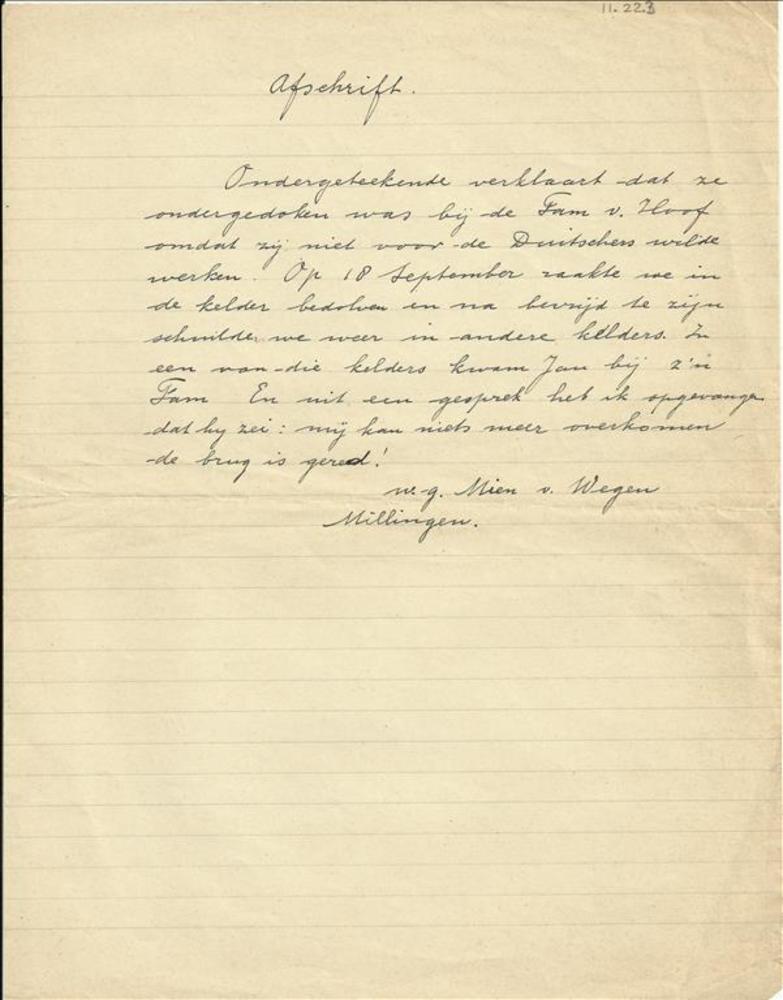 11.22.3
Afschrift.
Ondergeteekende verklaart dat ze
ondergedoken was bij de Fam v. Hoof
omdat zij niet voor de Duitschers wilde
werken. Op 18 September raakte we in
de kelder bedolven en na bevrijd te zijn
schuilde we weer in andere kelders. In
een van die kelders kwam Jan bij z'n
Fam En uit een gesprek heb ik opgevangen
dat hy zei: mij kan niets meer overkomen
de brug is gered!
w.g. Mien v. Wegen
Millingen.